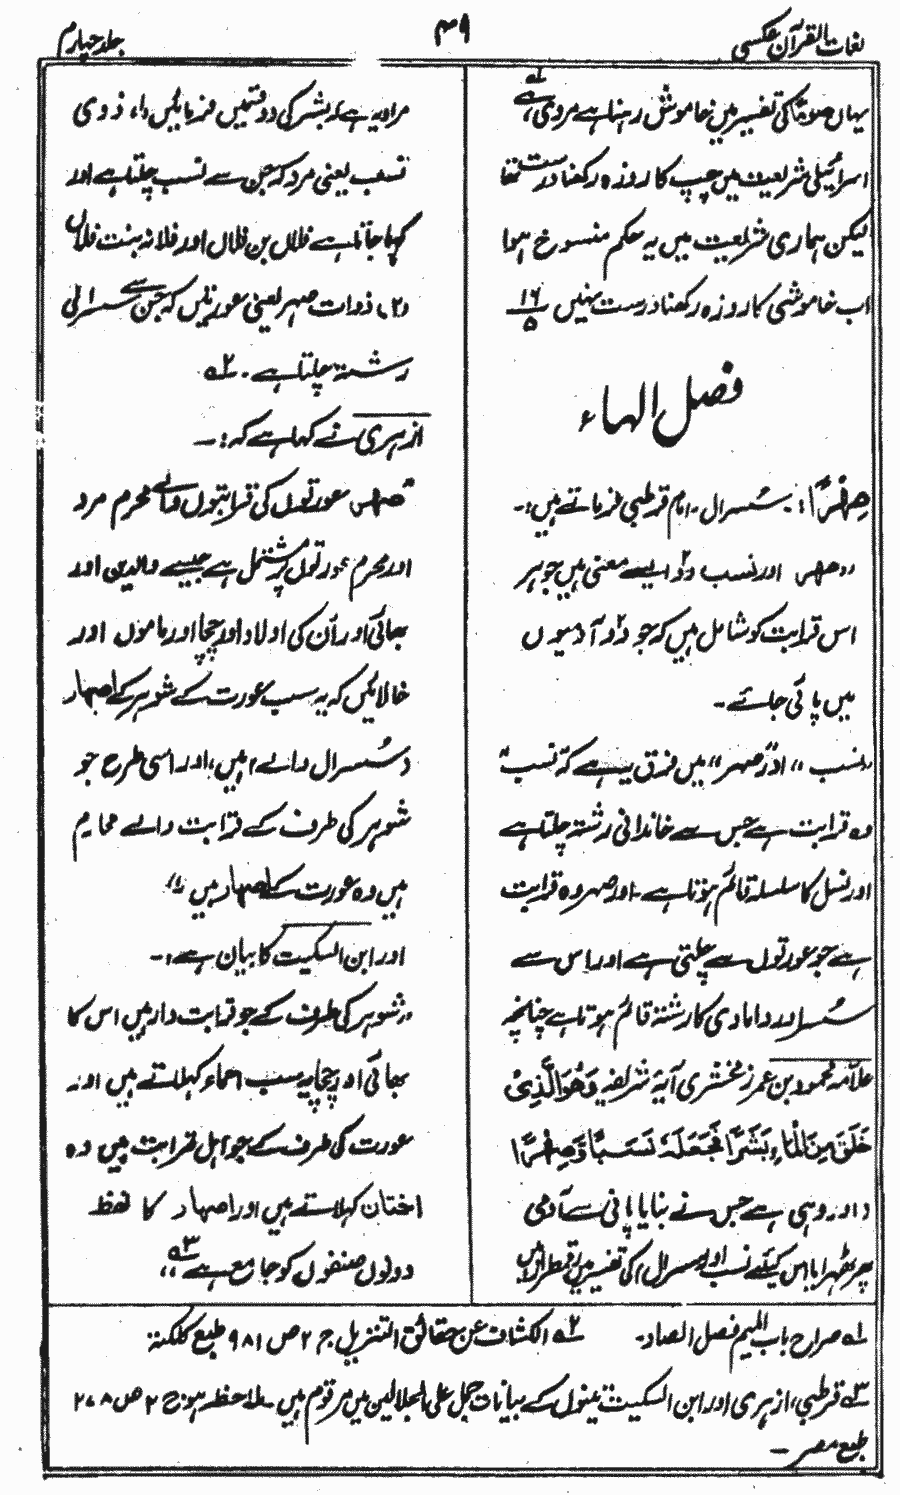 لغات القرآن عکسی
۴۹
جلد چہارم
یہاں صوماً کی تفسیر میں خاموش رہنا ہے مروی ہے، ۱ھ
اسرائیلی شریعت میں چپ کا روزہ رکھنا درست تھا
لیکن ہماری شریعت میں یہ حکم منسوخ ہوا
اب خاموشی کا روزہ رکھنا درست نہیں ۱۶/۵
فصل الہاء
صِهْرًا: ۔ سُسرال۔ امام قرطبی فرماتے ہیں:۔
”صہر اور نسب دو ایسے معنی ہیں جو ہر
اس قرابت کو شامل ہیں کہ جو دو آدمیوں
میں پائی جائے ۔
”نسب“ اور ”صہر“ میں فرق یہ ہے کہ نسب
وہ قرابت ہے جس سے خاندانی رشتہ چلتا ہے
اور نسل کا سلسلہ قائم ہوتا ہے۔ اور صہر وہ قرابت
ہے جو عورتوں سے چلتی ہے اور اس سے
سُسرا اور دامادی کا رشتہ قائم ہوتا ہے چنانچہ
علّامہ محمود بن عمر زمخشری آیۂ شریفہ وَهُوَ الَّذِیْ
خَلَقَ مِنَ الْمَاءِ بَشَرًا فَجَعَلَهٗ نَسَبًا وَّصِهْرًا
(اور وہی ہے جس نے بنایا پانی سے آدمی
پھر ٹھہرایا اس کیلئے نسب اور سسرال) کی تفسیر میں رقمطراز ہیں
مراد یہ ہے کہ بشر کی دو قسمیں فرمائیں (۱) ذوی
نسب یعنی مرد کہ جن سے نسب چلتا ہے اور
کہا جاتا ہے فلاں بن فلاں اور فلانہ بنت فلاں
(۲) ذوات صہر یعنی عورتیں کہ جن سے سسرالی
رشتہ چلتا ہے ۔ ۲ھ
ازہری نے کہا ہے کہ:۔
”صہر عورتوں کی قرابتوں والے محرم مرد
اور محرم عورتوں پر مشتمل ہے جیسے والدین اور
بھائی اور اُن کی اولاد اور چچا اور ماموں اور
خالائیں کہ یہ سب عورت کے شوہر کے اصہار
(سُسرال والے) ہیں، اور اسی طرح جو
شوہر کی طرف کے قرابت والے محارم
ہیں وہ عورت کے اصہار ہیں“
اور ابن السکیت کا بیان ہے:۔
”شوہر کی طرف کے جو قرابت دار ہیں اس کا
بھائی اور چچا یہ سب احماء کہلاتے ہیں اور
عورت کی طرف کے جو اہل قرابت ہیں وہ
اختان کہلاتے ہیں اور اصہار کا لفظ
دونوں صنفوں کو جامع ہے“ ۳ھ
۱ھ صراح باب المیم فصل الصاد۔ ۲ھ الکشاف عن حقائق التنزیل ج ۲ ص ۹۸۱ طبع کلکتہ
۳ھ قرطبی، ازہری اور ابن السکیت تینوں کے بیانات جمل علی الجلالین میں مرقوم ہیں ۔ ملاحظہ ہو ج ۲ ص ۲۷۸
طبع مصر ۔